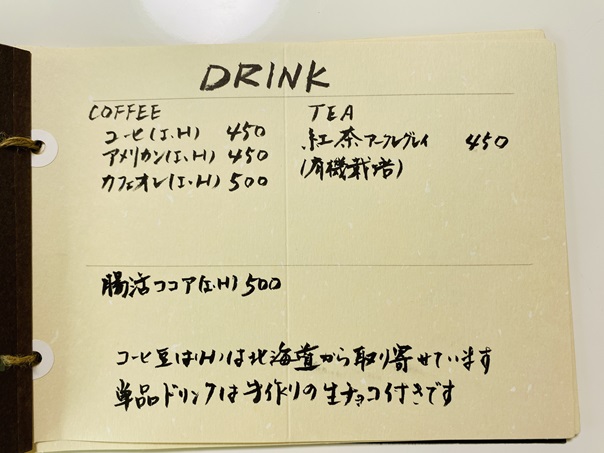 DRINK
COFFEE
コーヒ(I・H) 450
アメリカン(I・H) 450
カフェオレ(I・H) 500
TEA
紅茶アールグレイ 450
(有機栽培)
腸活ココア(I・H) 500
コーヒ豆は(H)は北海道から取り寄せています
単品ドリンクは手作りの生チョコ付きです